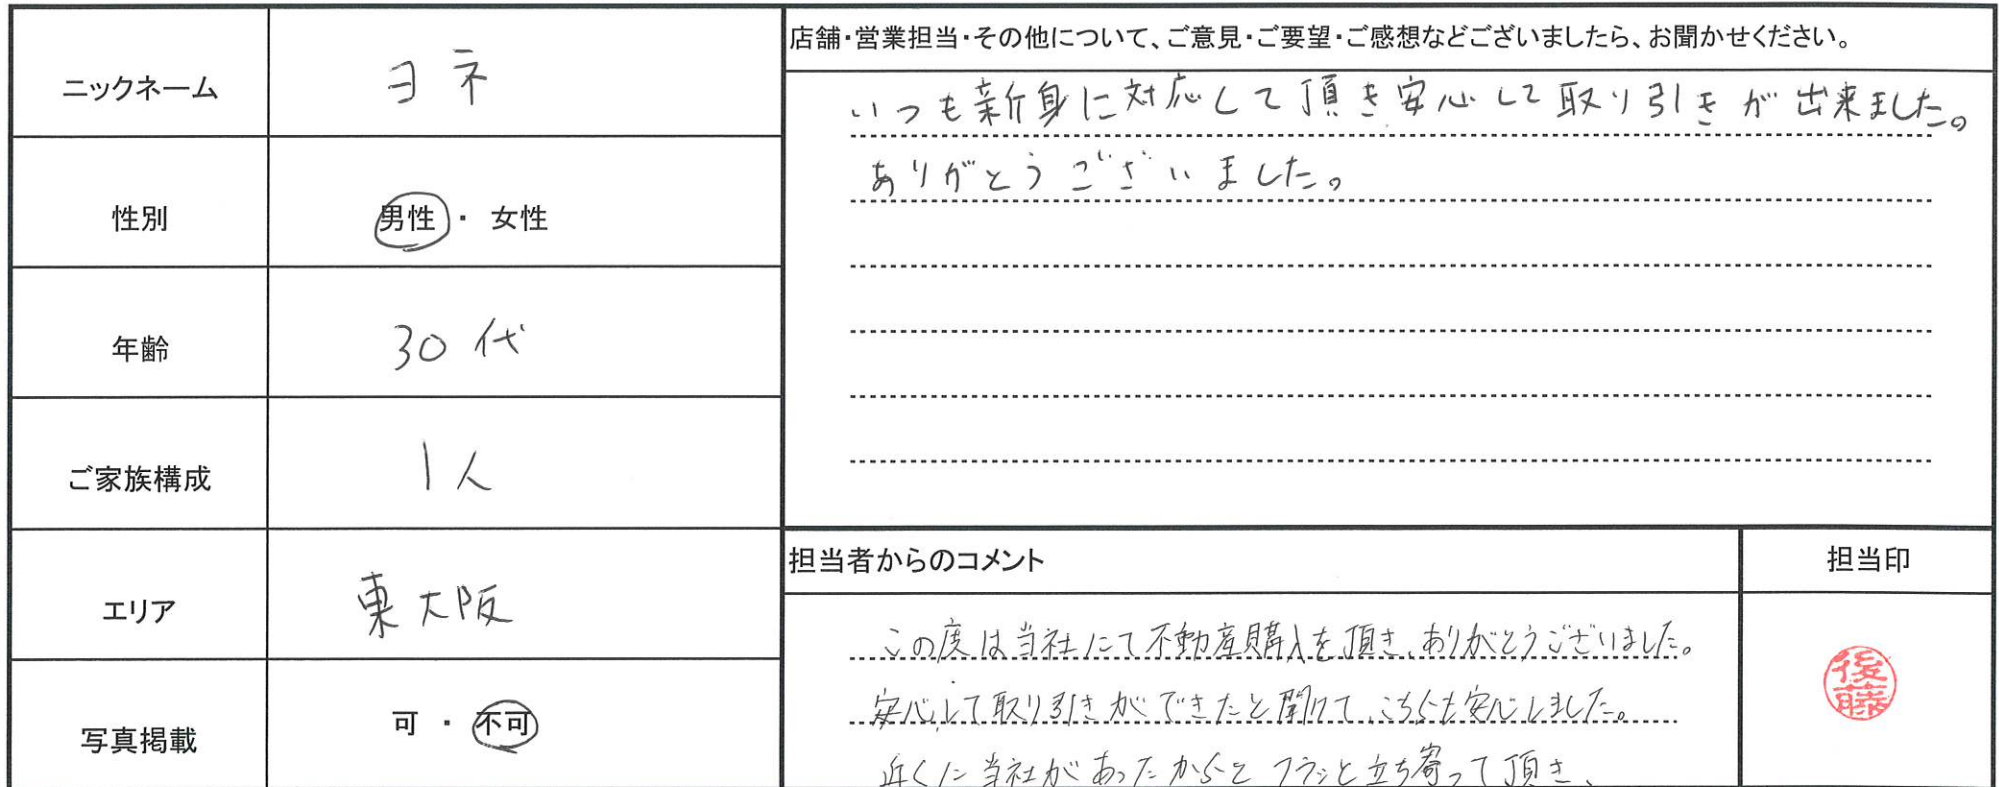 ニックネーム
ヨネ
性別
男性 ・ 女性
年齢
30代
ご家族構成
1人
エリア
東大阪
写真掲載
可 ・ 不可
店舗・営業担当・その他について、ご意見・ご要望・ご感想などございましたら、お聞かせください。
いつも新身に対応して頂き安心して取り引きが出来ました。
ありがとうございました。
担当者からのコメント
この度は当社にて不動産購入を頂き、ありがとうございました。
安心して取り引きができたと聞けて、こちらも安心しました。
近くに当社があったからとフラッと立ち寄って頂き、
担当印
後藤